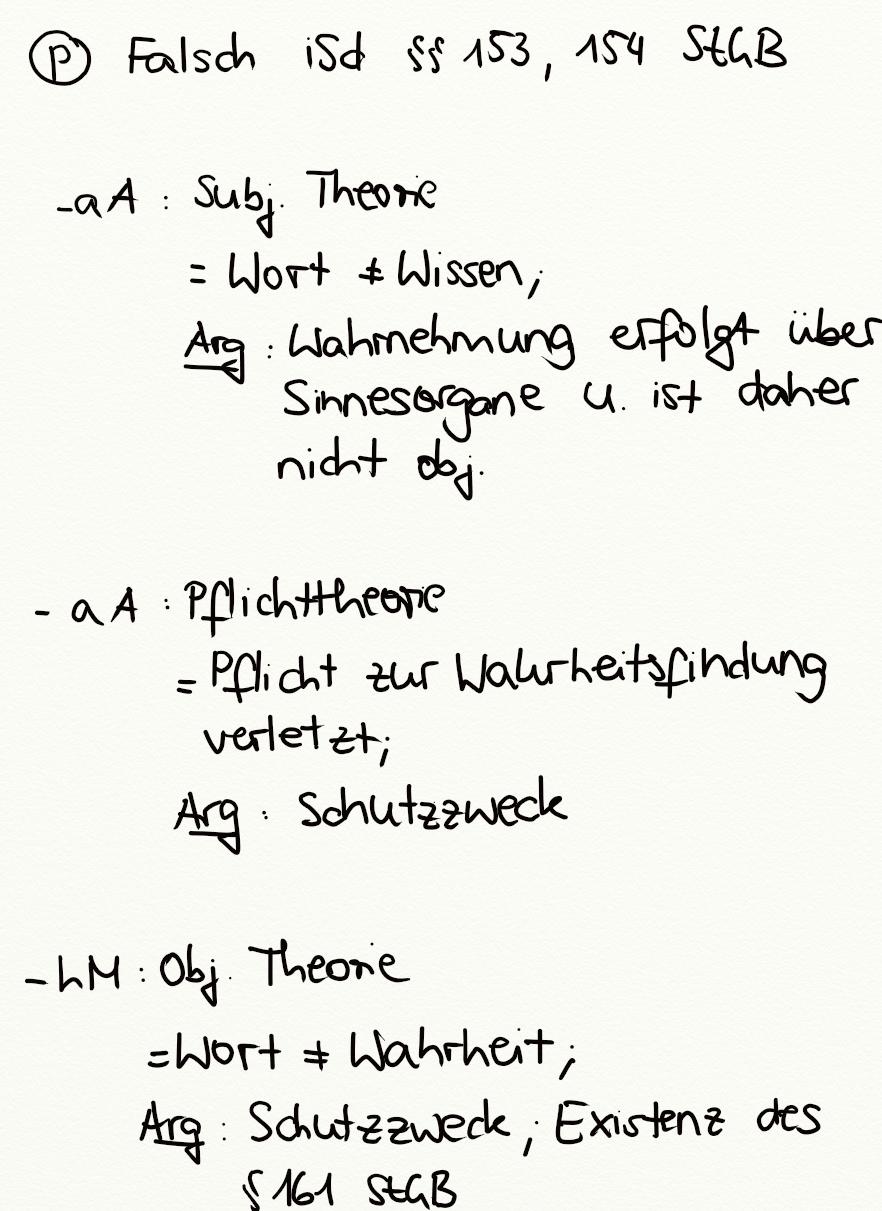 Ⓟ Falsch iSd §§ 153, 154 StGB
- aA : Subj. Theorie
= Wort ≠ Wissen;
Arg : Wahrnehmung erfolgt über
Sinnesorgane u. ist daher
nicht obj.
- aA : Pflichttheorie
= Pflicht zur Wahrheitsfindung
verletzt;
Arg : Schutzzweck
- hM : Obj. Theorie
= Wort ≠ Wahrheit;
Arg : Schutzzweck, Existenz des
§ 161 StGB